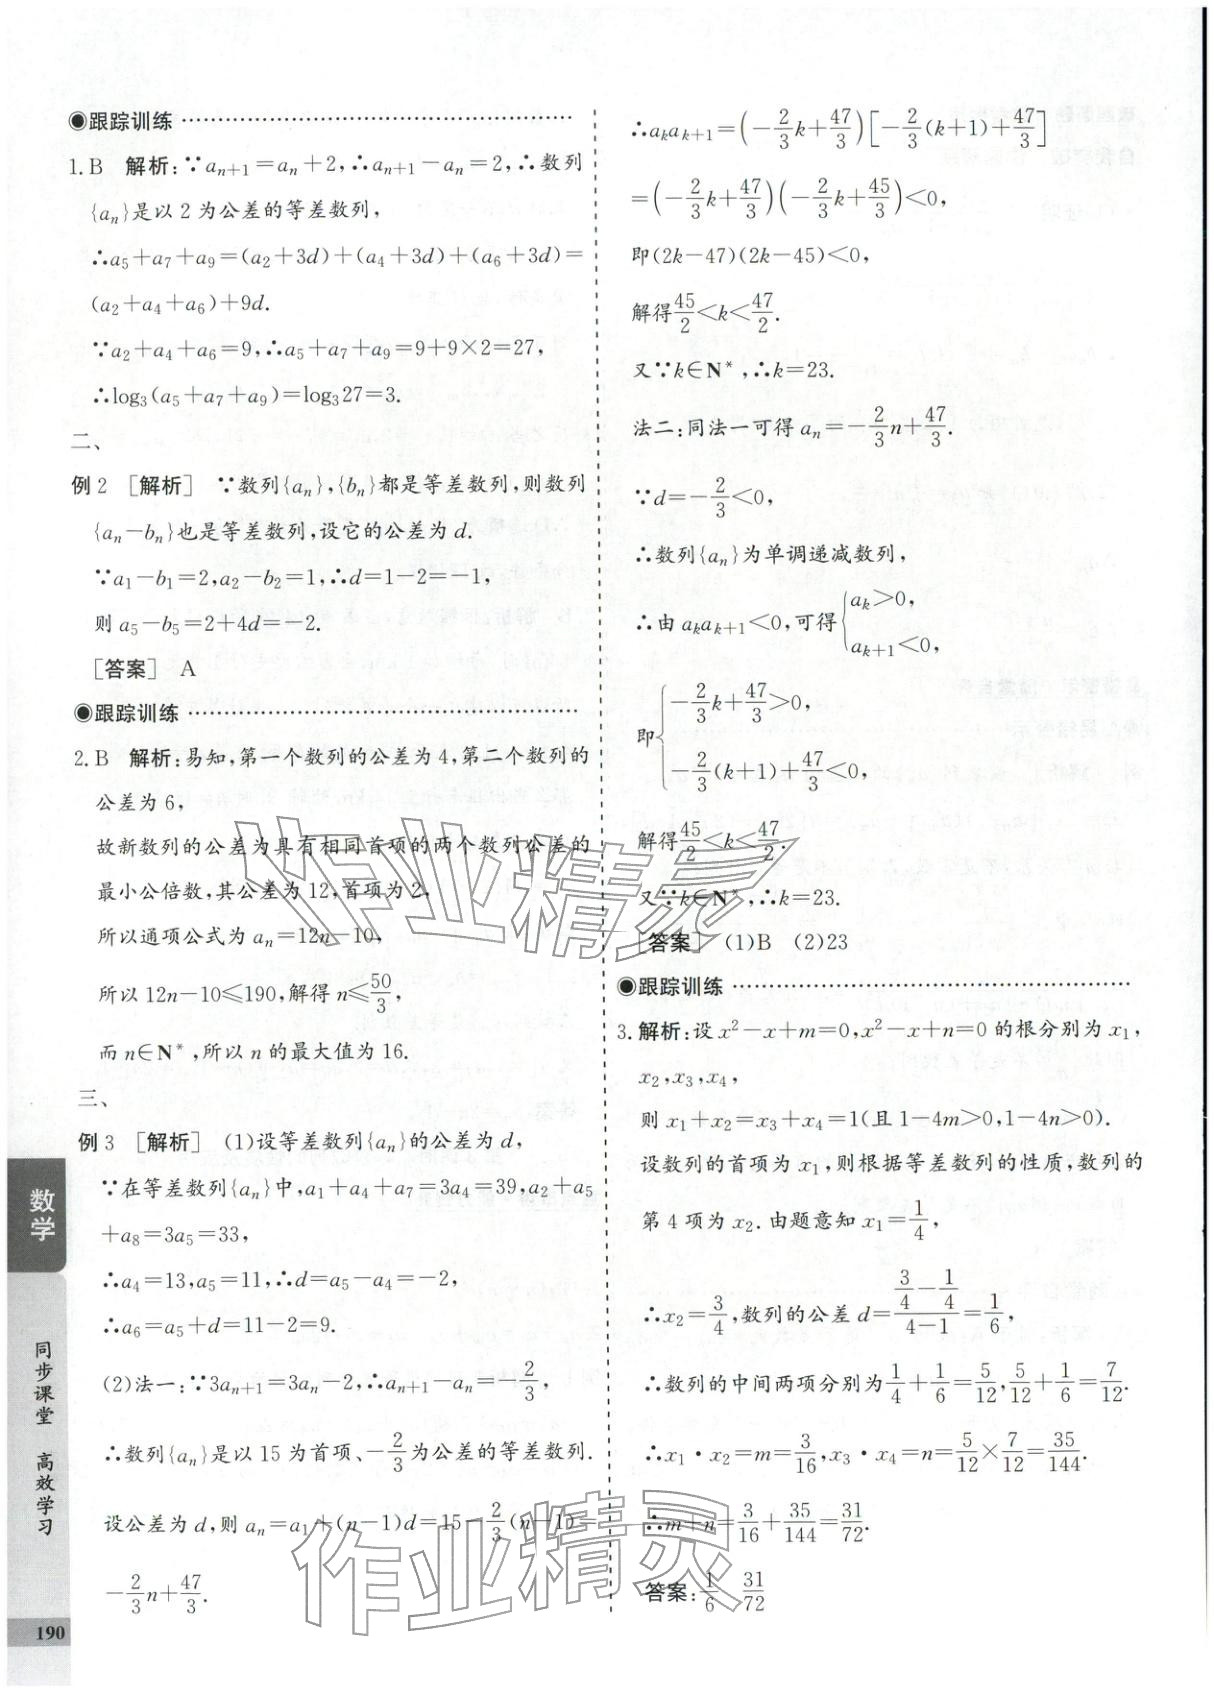 ◉跟踪训练
1. B 解析:∵aₙ₊₁=aₙ+2,∴aₙ₊₁-aₙ=2,∴数列
{aₙ}是以 2 为公差的等差数列,
∴a₅+a₇+a₉=(a₂+3d)+(a₄+3d)+(a₆+3d)=
(a₂+a₄+a₆)+9d.
∵a₂+a₄+a₆=9,∴a₅+a₇+a₉=9+9×2=27,
∴log₃(a₅+a₇+a₉)=log₃27=3.
二、
例 2 [解析] ∵数列{aₙ},{bₙ}都是等差数列,则数列
{aₙ-bₙ}也是等差数列,设它的公差为 d.
∵a₁-b₁=2,a₂-b₂=1,∴d=1-2=-1,
则 a₅-b₅=2+4d=-2.
[答案] A
◉跟踪训练
2. B 解析:易知,第一个数列的公差为 4,第二个数列的
公差为 6,
故新数列的公差为具有相同首项的两个数列公差的
最小公倍数,其公差为 12,首项为 2,
所以通项公式为 aₙ=12n-10,
所以 12n-10≤190,解得 n≤50/3,
而 n∈N*,所以 n 的最大值为 16.
三、
例 3 [解析] (1)设等差数列{aₙ}的公差为 d,
∵在等差数列{aₙ}中,a₁+a₄+a₇=3a₄=39,a₂+a₅
+a₈=3a₅=33,
∴a₄=13,a₅=11,∴d=a₅-a₄=-2,
∴a₆=a₅+d=11-2=9.
(2)法一:∵3aₙ₊₁=3aₙ-2,∴aₙ₊₁-aₙ=-2/3,
∴数列{aₙ}是以 15 为首项、-2/3为公差的等差数列.
设公差为 d,则 aₙ=a₁+(n-1)d=15-2/3(n-1)=
-2/3n+47/3.
∴aₖaₖ₊₁=(-2/3k+47/3)[-2/3(k+1)+47/3]
=(-2/3k+47/3)(-2/3k+45/3)<0,
即(2k-47)(2k-45)<0,
解得45/2<k<47/2.
又∵k∈N*,∴k=23.
法二:同法一可得 aₙ=-2/3n+47/3.
∵d=-2/3<0,
∴数列{aₙ}为单调递减数列,
∴由 aₖaₖ₊₁<0,可得{aₖ>0,
aₖ₊₁<0,
即{-2/3k+47/3>0,
-2/3(k+1)+47/3<0,
解得45/2<k<47/2.
又∵k∈N*,∴k=23.
[答案] (1)B (2)23
◉跟踪训练
3. 解析:设 x²-x+m=0,x²-x+n=0 的根分别为 x₁,
x₂,x₃,x₄,
则 x₁+x₂=x₃+x₄=1(且 1-4m>0,1-4n>0).
设数列的首项为 x₁,则根据等差数列的性质,数列的
第 4 项为 x₂. 由题意知 x₁=1/4,
∴x₂=3/4,数列的公差 d=(3/4-1/4)/(4-1)=1/6,
∴数列的中间两项分别为1/4+1/6=5/12,5/12+1/6=7/12.
∴x₁·x₂=m=3/16,x₃·x₄=n=5/12×7/12=35/144.
∴m+n=3/16+35/144=31/72.
答案:1/6 31/72
数学
同步课堂 高效学习
190
作业精灵
作业精灵